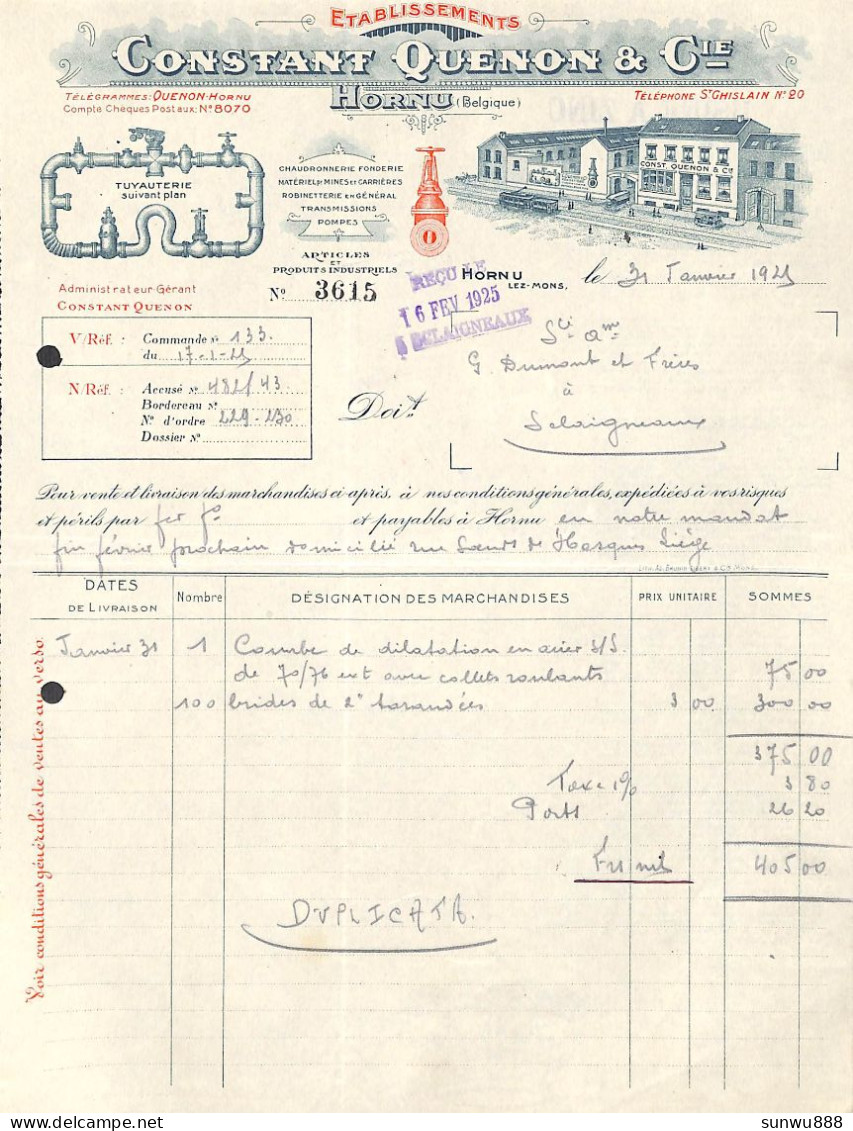 ETABLISSEMENTS
CONSTANT QUENON & CIE
HORNU (Belgique)
TÉLÉGRAMMES: QUENON-HORNU
Compte Chèques Postaux: N° 8070
TÉLÉPHONE ST GHISLAIN N° 20
TUYAUTERIE
suivant plan
CHAUDRONNERIE FONDERIE
MATÉRIEL DE MINES ET CARRIÈRES
ROBINETTERIE EN GÉNÉRAL
TRANSMISSIONS
POMPES
ARTICLES
ET
PRODUITS INDUSTRIELS
CONST. QUENON & CIE
Administrateur-Gérant
CONSTANT QUENON
N° 3615
REÇU LE
16 FEV 1925
SCLAIGNEAUX
HORNU
LEZ-MONS,
le 31 Janvier 1925
V/Réf. : Commande N° 133.
du 17-1-25
N/Réf. : Accusé N° 482/43
Bordereau N°
N° d'ordre 229-230
Dossier N°
Doit
Sté Ame
G. Dumont et Frères
à
Sclaigneaux
Pour vente et livraison des marchandises ci-après, à nos conditions générales, expédiées à vos risques
et périls par fer fo et payables à Hornu en notre mandat
fin février prochain domicilié rue de Liége
DATES
DE LIVRAISON
Nombre
DÉSIGNATION DES MARCHANDISES
PRIX UNITAIRE
SOMMES
Janvier 31 1 Courbe de dilatation en acier S/S.
de 70/76 ext avec collets roulants 75 00
100 brides de 2" taraudées 3 00 300 00
375 00
Taxe 1% 3 80
Ports 26 20
405 00
DUPLICATA.
Voir conditions générales de ventes au verso.
sunwu888